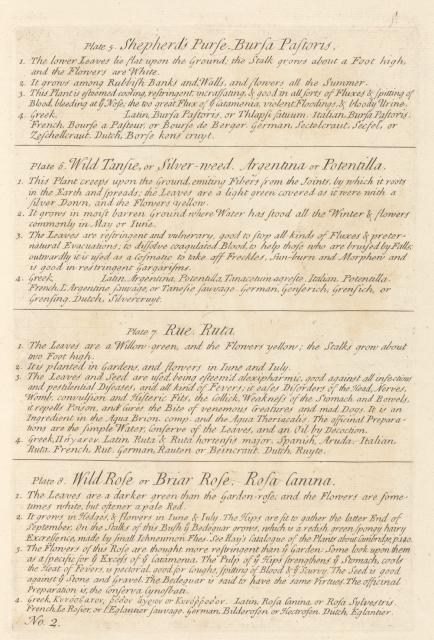 Plate 5. Shepherd's Purse. Bursa Pastoris.
1. The lower Leaves lie flat upon the Ground; the Stalk grows about a Foot high,
and the Flowers are White.
2. It grows among Rubbish Banks and Walls, and flowers all the Summer.
3. This Plant is esteemed cooling, restringent, incrassating, & good in all sorts of Fluxes & spitting of
Blood, bleeding at ye Nose, the too great Flux of ye Catamenia, violent Floodings, & bloody Urine.
4. Greek, Latin, Bursa Pastoris, or Thlapsi fatuum. Italian, Bursa Pastoris.
French, Bourse a Pasteur, or Bourse de Berger. German, Seckelcraut, Seckel, or
Dutch, Borse kens cruyt.
Plate 6. Wild Tansie, or Silver-weed. Argentina or Potentilla.
1. This Plant creeps upon the Ground, emiting Fibers from the Joints, by which it roots
in the Earth and spreads; the Leaves are a light green covered as it were with a
silver Down, and the Flowers yellow.
2. It grows in moist barren Ground where Water has stood all the Winter & flowers
commonly in May or June.
3. The Leaves are restringent and vulnerary, good to stop all kinds of Fluxes & preter-
natural Evacuations; to dissolve coagulated Blood, to help those who are bruised by Falls;
outwardly it is used as a Cosmatic to take off Freckles, Sun-burn and Morphew and
is good in restringent Gargarisms.
4. Greek, Latin, Argentina, Potentilla, Tanacetum agreste. Italian, Potentilla.
French, L'Argentine sauvage, or Tanesie sauvage. German, Genserich, Grensich, or
Grensing. Dutch, Silvercruyt.
Plate 7. Rue. Ruta
1. The Leaves are a Willow green, and the Flowers yellow; the Stalks grow about
two Foot high.
2. It is planted in Gardens, and flowers in Iune and Iuly.
3. The Leaves and Seed are used, being esteem'd alexipharmic, good against all infectious
and pestilential Diseases, and all kind of Fevers; it eases Disorders of the Head, Nerves,
Womb, convulsion and Histeric Fits, the Collick, Weakness of the Stomach and Bowels,
it repells Poison, and Cures the Bite of venemous Creatures and mad Dogs. It is an
Ingredient in the Aqua Brion. comp. and the Aqua Theriacalis. The officinal Prepara-
tions are the simple Water, Conserve of the Leaves, and an Oil by Decoction.
4. Greek, Πήγανον. Latin, Ruta & Ruta hortensis major. Spanish, Aruda. Italian,
Ruta. French, Rut. German, Rauten or Beincraut. Dutch, Ruyte.
Plate 8. Wild Rose or Briar Rose. Rosa Canina.
1. The Leaves are a darker green than the Garden-rose, and the Flowers are some-
times white, but oftener a pale Red.
2. It grows in Hedges, & flowers in June & July. The Hips are fit to gather the latter End of
September. On the Stalks of this Bush ye Bedeguar grows, which is a redish green spongy hairy
Excressence, made by small Ichneumon Flies. See Ray's Catalogue of the Plants about Cambridge, p.140.
3. The Flowers of this Rose are thought more restringent than ye Garden: Some look upon them
as a specific for ye Excess of ye Catamenia. The Pulp of ye Hips strengthens ye Stomach, cools
the Heat of Fevers, is pectoral, good for Coughs, spitting of Blood & ye Scurvy. The Seed is good
against ye Stone and Gravel. The Bedeguar is said to have the same Virtues. The officinal
Preparation is, the Conserva Cynosbati.
4. Greek, Κυνόσβατον, ῥόδον ἄγριον or Κυνόῤῥοδον. Latin, Rosa Canina, or Rosa Sylvestris.
French, Le Rosier, or l'Eglantier sauvage. German, Bilderosen or Heckrosen. Dutch, Eglantier.
No. 2.